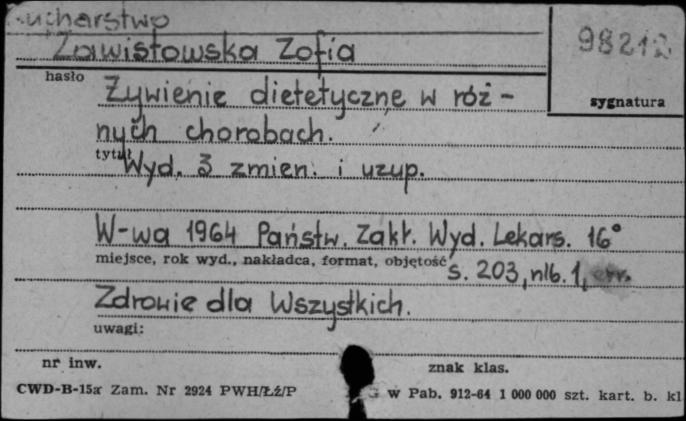 Kucharstwo
Zawistowska Zofia
hasło
98212
sygnatura
Żywienie dietetyczne w róż-
nych chorobach.
tytuł
Wyd. 3 zmien. i uzup.
W-wa 1964 Państw. Zakł. Wyd. Lekars. 16°
miejsce, rok wyd., nakładca, format, objętość
s. 203, nlb. 1,
Zdrowie dla Wszystkich.
uwagi:
nr inw.
znak klas.
CWD-B-15x Zam. Nr 2924 PWH/Łź/P
G w Pab. 912-64 1 000 000 szt. kart. b. kl